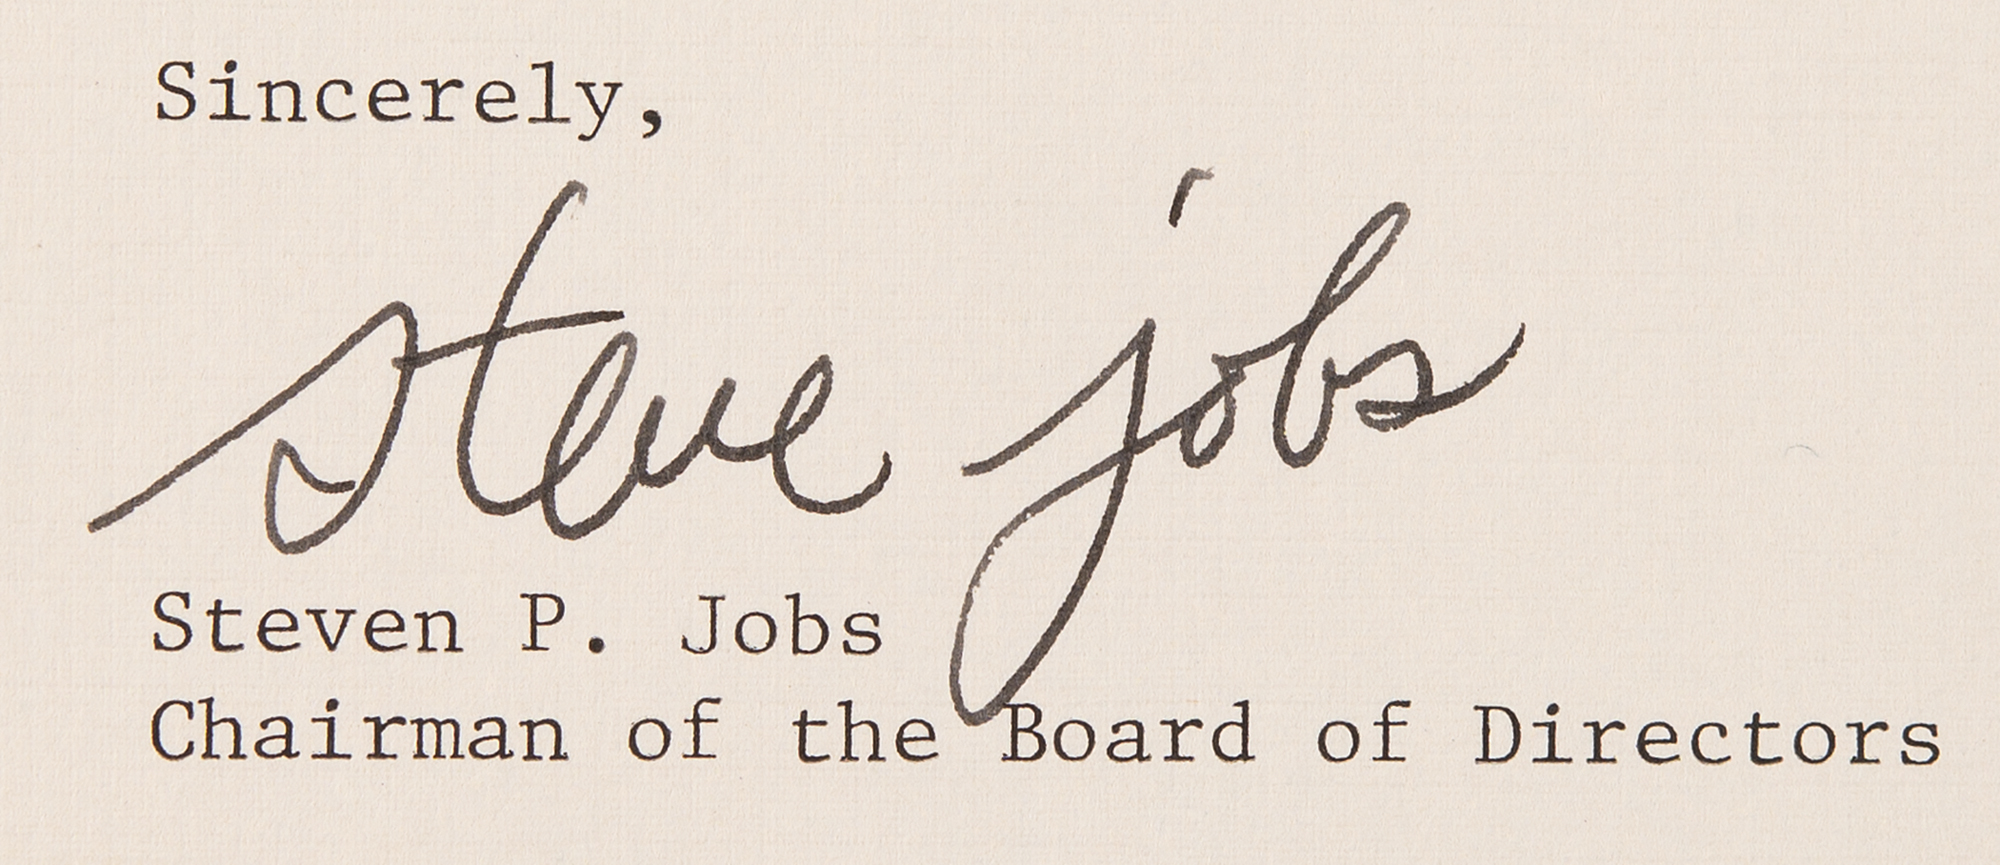 Sincerely,
steve jobs
Steven P. Jobs
Chairman of the Board of Directors